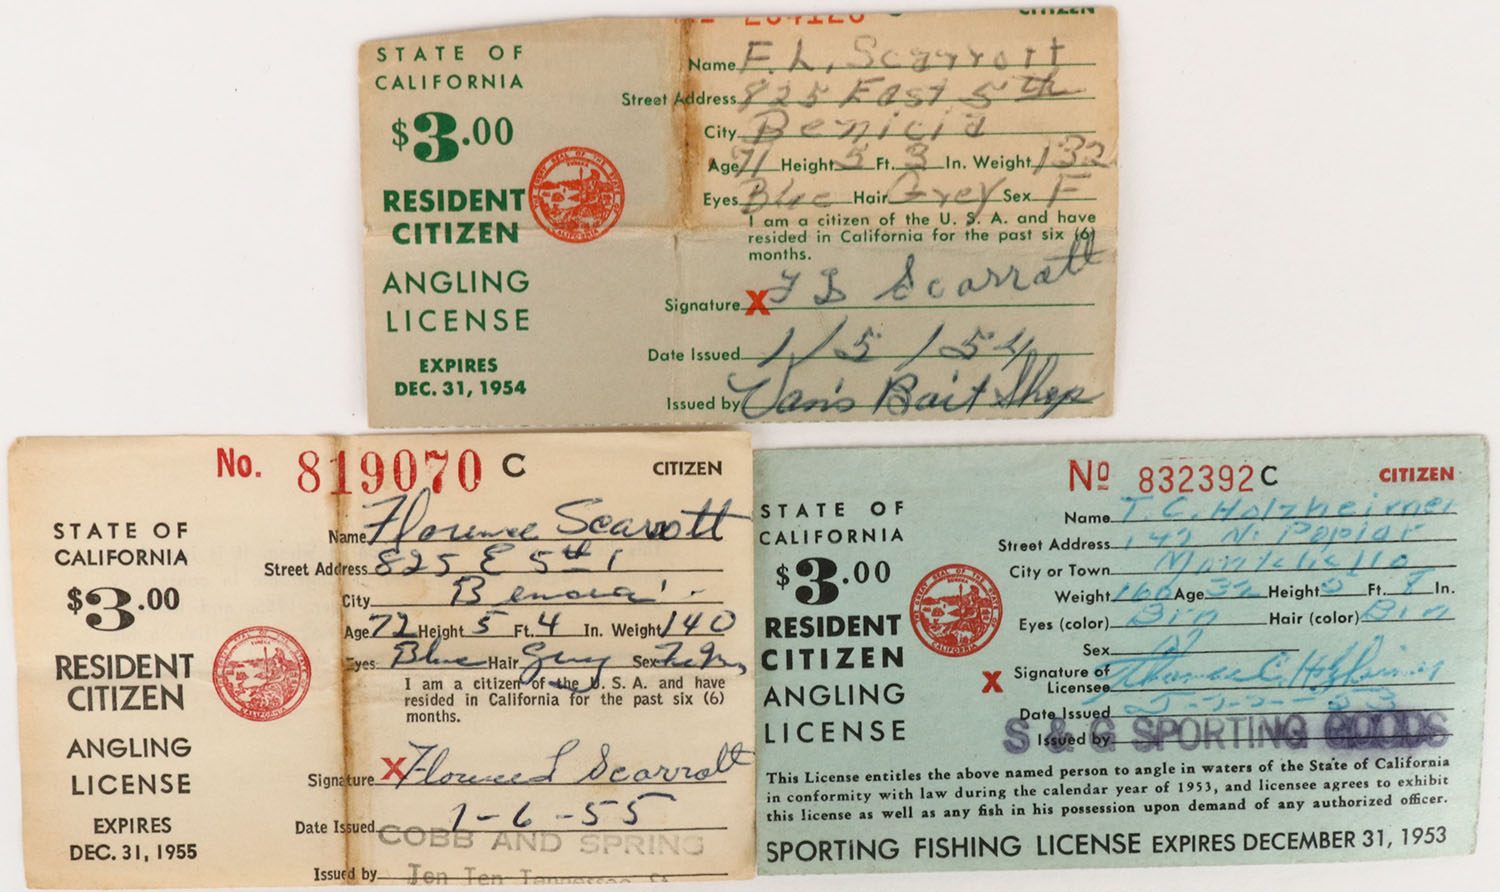 CITIZEN
STATE OF
CALIFORNIA
$3.00
RESIDENT
CITIZEN
ANGLING
LICENSE
EXPIRES
DEC. 31, 1954
Name F. L. Scarrott
Street Address 825 East 5th
City Benicia
Age 71 Height 5 Ft. 3 In. Weight 132
Eyes Blue Hair Grey Sex F
I am a citizen of the U. S. A. and have
resided in California for the past six (6)
months.
Signature X F L Scarrott
Date Issued 1/5/54
Issued by Van's Bait Shop
No. 819070 C CITIZEN
STATE OF
CALIFORNIA
$3.00
RESIDENT
CITIZEN
ANGLING
LICENSE
EXPIRES
DEC. 31, 1955
Name Florence Scarrott
Street Address 825 E 5th
City
Age 72 Height 5 Ft. 4 In. Weight 140
Eyes Blue Hair Grey Sex
I am a citizen of the U. S. A. and have
resided in California for the past six (6)
months.
Signature X Florence L Scarrott
Date Issued 1-6-55
COBB AND SPRING
Issued by Tennessee St
No 832392 C CITIZEN
STATE OF
CALIFORNIA
$3.00
RESIDENT
CITIZEN
ANGLING
LICENSE
Name T. C. Holzheimer
Street Address 142 N. Poplar
City or Town Montebello
Weight 160 Age 32 Height 5 Ft. 9 In.
Eyes (color) Brn Hair (color) Brn
Sex M
X Signature of
Licensee Thomas C. Holzheimer
Date Issued
Issued by S & G SPORTING GOODS
This License entitles the above named person to angle in waters of the State of California
in conformity with law during the calendar year of 1953, and licensee agrees to exhibit
this license as well as any fish in his possession upon demand of any authorized officer.
SPORTING FISHING LICENSE EXPIRES DECEMBER 31, 1953